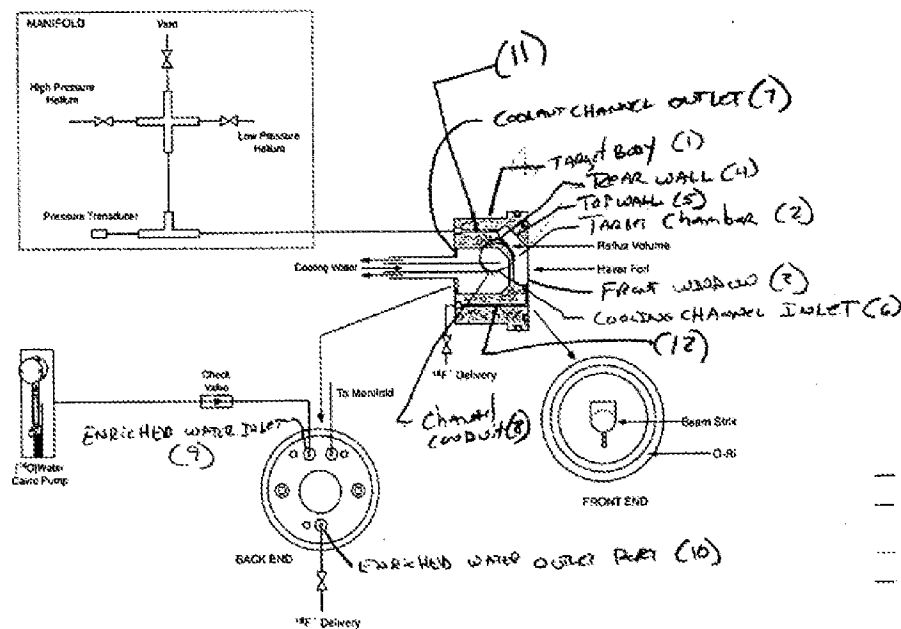 MANIFOLD
Vent
High Pressure
Helium
Low Pressure
Helium
Pressure Transducer
(11)
COOLANT CHANNEL OUTLET (7)
TARGET BODY (1)
REAR WALL (4)
TOP WALL (5)
TARGET Chamber (2)
Reflux Volume
Cooling Water
Havar Foil
FRONT WINDOW (3)
COOLING CHANNEL INLET (6)
(12)
Delivery
Check
Valve
To Manifold
CHANNEL
CONDUIT (8)
ENRICHED WATER INLET
(9)
Water
Pump
Beam Strike
O-Ri
FRONT END
BACK END
ENRICHED WATER OUTLET PORT (10)
Delivery